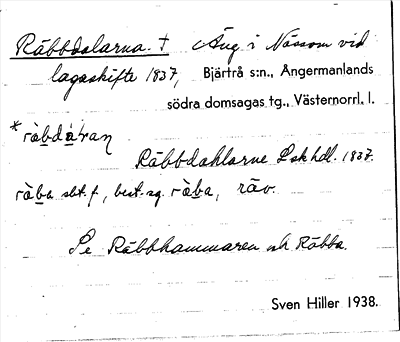 Räbbdalarna. † Äng i Nässom vid
lagaskifte 1837, Bjärtrå s:n., Ångermanlands
södra domsagas tg., Västernorrl. l.
*ràbdàran
Räbbdahlarne Lskhdl. 1837.
ràba sbt. f, best. sg. ràba, räv.
Se Räbbhammaren och Räbba.
Sven Hiller 1938.